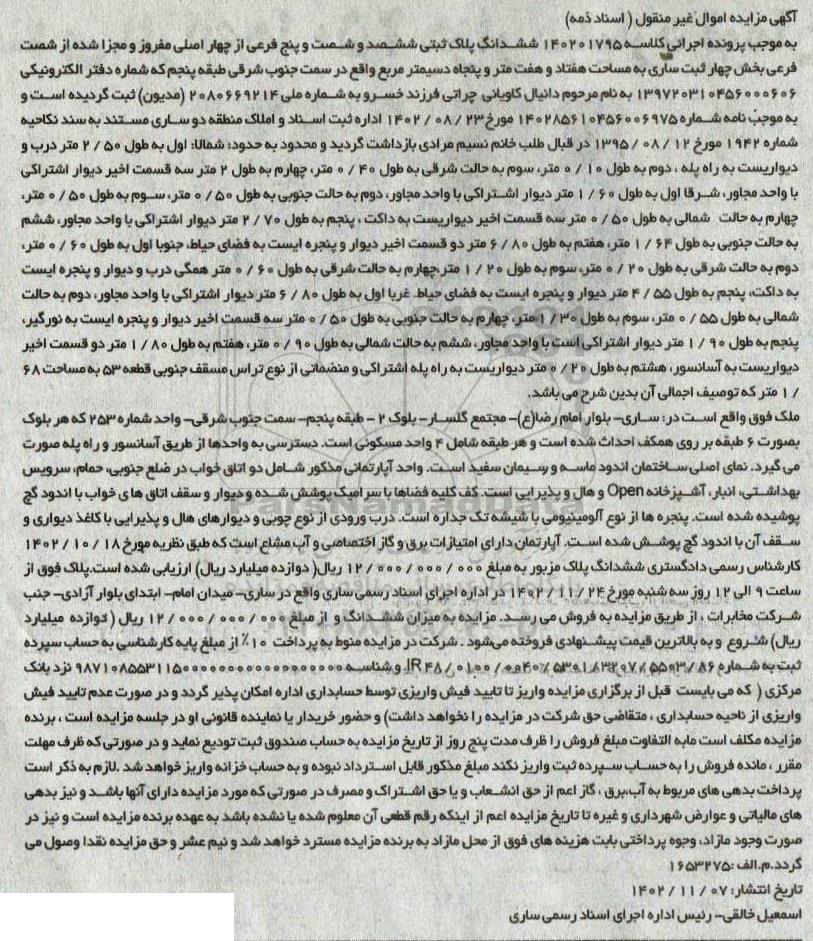 آگهی مزایده اموال غیر منقول ( اسناد ذمه)
به موجب پرونده اجرائی کلاسه ۱۴۰۲۰۱۷۹۵ ششدانگ پلاک ثبتی ششصد و شصت و پنج فرعی از چهار اصلی مفروز و مجزا شده از شصت
فرعی بخش چهار ثبت ساری به مساحت هفتاد و هفت متر و پنجاه دسیمتر مربع واقع در سمت جنوب شرقی طبقه پنجم که شماره دفتر الکترونیکی
۱۳۹۷۲۰۳۱۰۴۵۶۰۰۰۶۰۶ به نام مرحوم دانیال کاویانی چراتی فرزند خسرو به شماره ملی ۲۰۸۰۶۶۹۲۱۴ (مدیون) ثبت گردیده است و
به موجب نامه شماره ۱۴۰۲۸۵۶۱۰۴۵۶۰۰۶۹۷۵ مورخ ۲۳ / ۰۸ / ۱۴۰۲ اداره ثبت اسناد و املاک منطقه دو ساری مستند به سند نکاحیه
شماره ۱۹۴۲ مورخ ۱۲ / ۰۸ / ۱۳۹۵ در قبال طلب خانم نسیم مرادی بازداشت گردید و محدود به حدود: شمالا: اول به طول ۵۰ / ۲ متر درب و
دیواریست به راه پله ، دوم به طول ۱۰ / ۰ متر، سوم به حالت شرقی به طول ۴۰ / ۰ متر، چهارم به طول ۲ متر سه قسمت اخیر دیوار اشتراکی
با واحد مجاور، شرقا اول به طول ۶۰ / ۱ متر دیوار اشتراکی با واحد مجاور، دوم به حالت جنوبی به طول ۵۰ / ۰ متر، سوم به طول ۵۰ / ۰ متر،
چهارم به حالت شمالی به طول ۵۰ / ۰ متر سه قسمت اخیر دیواریست به داکت ، پنجم به طول ۷۰ / ۲ متر دیوار اشتراکی با واحد مجاور، ششم
به حالت جنوبی به طول ۶۴ / ۱ متر، هفتم به طول ۸۰ / ۶ متر دو قسمت اخیر دیوار و پنجره ایست به فضای حیاط، جنوبا اول به طول ۶۰ / ۰ متر،
دوم به حالت شرقی به طول ۲۰ / ۰ متر، سوم به طول ۲۰ / ۱ متر،چهارم به حالت شرقی به طول ۶۰ / ۰ متر همگی درب و دیوار و پنجره ایست
به داکت، پنجم به طول ۵۵ / ۴ متر دیوار و پنجره ایست به فضای حیاط. غربا اول به طول ۸۰ / ۶ متر دیوار اشتراکی با واحد مجاور، دوم به حالت
شمالی به طول ۵۵ / ۰ متر، سوم به طول ۳۰ / ۱ متر، چهارم به حالت جنوبی به طول ۵۰ / ۰ متر سه قسمت اخیر دیوار و پنجره ایست به نورگیر،
پنجم به طول ۹۰ / ۱ متر دیوار اشتراکی است با واحد مجاور، ششم به حالت شمالی به طول ۹۰ / ۰ متر، هفتم به طول ۸۰ / ۱ متر دو قسمت اخیر
دیواریست به آسانسور، هشتم به طول ۲۰ / ۰ متر دیواریست به راه پله اشتراکی و منضماتی از نوع تراس مسقف جنوبی قطعه ۵۳ به مساحت ۶۸
/ ۱ متر که توصیف اجمالی آن بدین شرح می باشد.
ملک فوق واقع است در: ساری- بلوار امام رضا(ع)- مجتمع گلسار- بلوک ۲ - طبقه پنجم- سمت جنوب شرقی- واحد شماره ۲۵۳ که هر بلوک
بصورت ۶ طبقه بر روی همکف احداث شده است و هر طبقه شامل ۴ واحد مسکونی است. دسترسی به واحدها از طریق آسانسور و راه پله صورت
می گیرد. نمای اصلی ساختمان اندود ماسه و سیمان سفید است. واحد آپارتمانی مذکور شامل دو اتاق خواب در ضلع جنوبی، حمام، سرویس
بهداشتی، انبار، آشپزخانه Open و هال و پذیرایی است. کف کلیه فضاها با سرامیک پوشش شده و دیوار و سقف اتاق های خواب با اندود گچ
پوشیده شده است. پنجره ها از نوع آلومینیومی با شیشه تک جداره است. درب ورودی از نوع چوبی و دیوارهای هال و پذیرایی با کاغذ دیواری و
سقف آن با اندود گچ پوشش شده است. آپارتمان دارای امتیازات برق و گاز اختصاصی و آب مشاع است که طبق نظریه مورخ ۱۸ / ۱۰ / ۱۴۰۲
کارشناس رسمی دادگستری ششدانگ پلاک مزبور به مبلغ ۰۰۰ / ۰۰۰ / ۰۰۰ / ۱۲ ریال( دوازده میلیارد ریال) ارزیابی شده است.پلاک فوق از
ساعت ۹ الی ۱۲ روز سه شنبه مورخ ۲۴ / ۱۱ / ۱۴۰۲ در اداره اجرای اسناد رسمی ساری واقع در ساری- میدان امام- ابتدای بلوار آزادی- جنب
شرکت مخابرات ، از طریق مزایده به فروش می رسد. مزایده به میزان ششدانگ و از مبلغ ۰۰۰ / ۰۰۰ / ۰۰۰ / ۱۲ ریال ( دوازده میلیارد
ریال) شروع و به بالاترین قیمت پیشنهادی فروخته می‌شود . شرکت در مزایده منوط به پرداخت ۱۰٪ از مبلغ پایه کارشناسی به حساب سپرده
ثبت به شماره IR و شناسه نزد بانک
مرکزی ( که می بایست قبل از برگزاری مزایده واریز تا تایید فیش واریزی توسط حسابداری اداره امکان پذیر گردد و در صورت عدم تایید فیش
واریزی از ناحیه حسابداری ، متقاضی حق شرکت در مزایده را نخواهد داشت) و حضور خریدار یا نماینده قانونی او در جلسه مزایده است ، برنده
مزایده مکلف است مابه التفاوت مبلغ فروش را ظرف مدت پنج روز از تاریخ مزایده به حساب صندوق ثبت تودیع نماید و در صورتی که ظرف مهلت
مقرر ، مانده فروش را به حساب سپرده ثبت واریز نکند مبلغ مذکور قابل استرداد نبوده و به حساب خزانه واریز خواهد شد .لازم به ذکر است
پرداخت بدهی های مربوط به آب،برق ، گاز اعم از حق انشعاب و یا حق اشتراک و مصرف در صورتی که مورد مزایده دارای آنها باشد و نیز بدهی
های مالیاتی و عوارض شهرداری و غیره تا تاریخ مزایده اعم از اینکه رقم قطعی آن معلوم شده یا نشده باشد به عهده برنده مزایده است و نیز در
صورت وجود مازاد، وجوه پرداختی بابت هزینه های فوق از محل مازاد به برنده مزایده مسترد خواهد شد و نیم عشر و حق مزایده نقدا وصول می
گردد.م.الف :۱۶۵۳۲۷۵
تاریخ انتشار: ۰۷ / ۱۱ / ۱۴۰۲
اسمعیل خالقی- رئیس اداره اجرای اسناد رسمی ساری